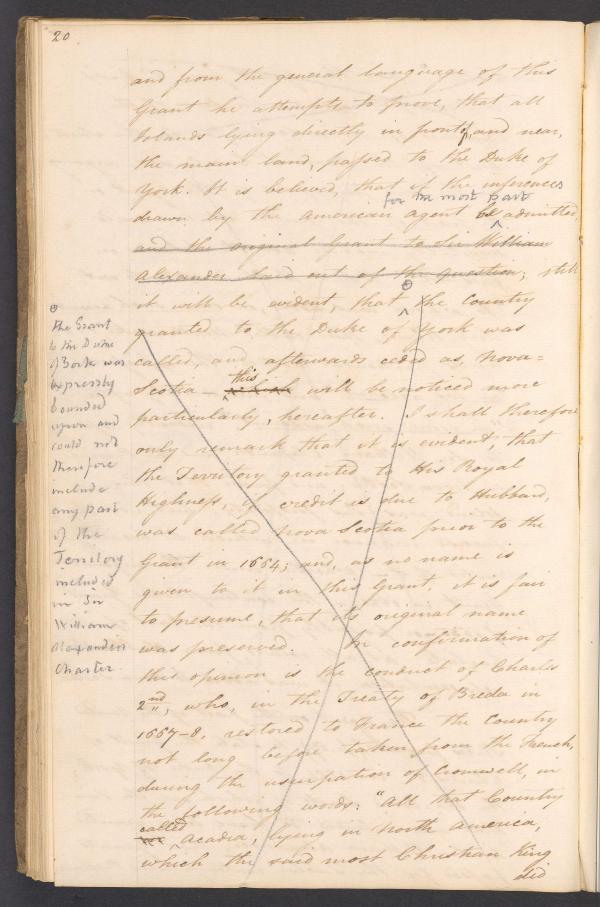 20
and from the general language of this
Grant he attempts to prove, that all
Islands lying directly in front of, and near,
the main land, passed to the Duke of
York. It is believed, that if the inferences
for the most part
drawn by the American agent be admitted,
and the original Grant to Sir William
Alexander laid out of the question; still
it will be evident, that the Country
granted to the Duke of York was
called, and afterwards ceded as, Nova=
this
Scotia – which will be noticed more
particularly, hereafter. I shall therefore
only remark that it is evident, that
the Territory granted to His Royal
Highness, if credit is due to Hubbard,
was called Nova Scotia prior to the
Grant in 1664; and, as no name is
given to it in this Grant, it is fair
to presume, that its original name
was preserved. In confirmation of
this opinion is the conduct of Charles
2nd, who, in the Treaty of Breda in
1667-8, restored to France the Country
not long before taken from the French,
during the usurpation of Cromwell, in
the following words; "All that Country
called
Acadia, lying in North America,
which the said most Christian King
did
The Grant
to the Duke
of York was
expressly
bounded
upon and
could not
therefore
include
any part
of the
Territory
included
in Sir
William
Alexanders
Charter.